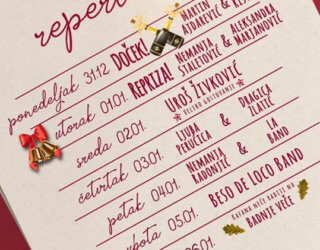 ponedeljak 31.12. DOČEK! MARTIN AJDAREVIĆ &
utorak 01.01. REPRIZA! NEMANJA STALETOVIĆ & ALEKSANDRA MARJANOVIĆ
sreda 02.01. UROŠ ŽIVKOVIĆ
VELIKO GOSTOVANJE
četvrtak 03.01. LJUBA PERUČICA & DRAGICA ZLATIĆ
petak 04.01. NEMANJA RADONJIĆ & LA BAND
subota 05.01. BESO DE LOCO BAND
06.01. KAFANA NEĆE RADITI NA
BADNJE VEČE